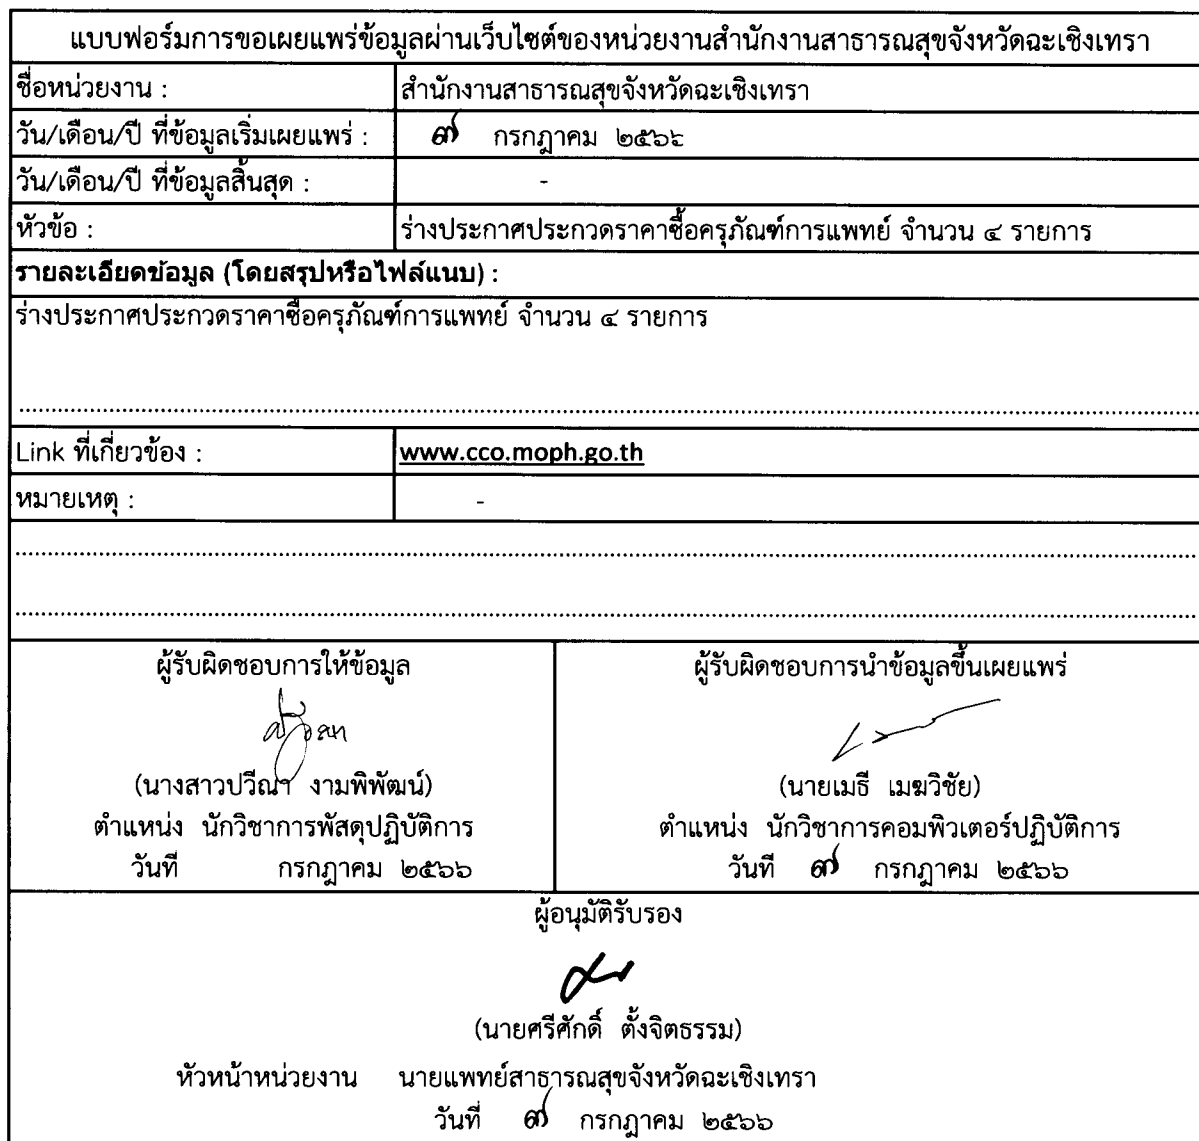 แบบฟอร์มการขอเผยแพร่ข้อมูลผ่านเว็บไซต์ของหน่วยงานสำนักงานสาธารณสุขจังหวัดฉะเชิงเทรา
ชื่อหน่วยงาน : สำนักงานสาธารณสุขจังหวัดฉะเชิงเทรา
วัน/เดือน/ปี ที่ข้อมูลเริ่มเผยแพร่ : ๗ กรกฎาคม ๒๕๖๖
วัน/เดือน/ปี ที่ข้อมูลสิ้นสุด : -
หัวข้อ : ร่างประกาศประกวดราคาซื้อครุภัณฑ์การแพทย์ จำนวน ๔ รายการ
รายละเอียดข้อมูล (โดยสรุปหรือไฟล์แนบ) :
ร่างประกาศประกวดราคาซื้อครุภัณฑ์การแพทย์ จำนวน ๔ รายการ
Link ที่เกี่ยวข้อง : www.cco.moph.go.th
หมายเหตุ : -
ผู้รับผิดชอบการให้ข้อมูล
(นางสาวปวีณา งามพิพัฒน์)
ตำแหน่ง นักวิชาการพัสดุปฏิบัติการ
วันที่ กรกฎาคม ๒๕๖๖
ผู้รับผิดชอบการนำข้อมูลขึ้นเผยแพร่
(นายเมธี เมฆวิชัย)
ตำแหน่ง นักวิชาการคอมพิวเตอร์ปฏิบัติการ
วันที่ ๗ กรกฎาคม ๒๕๖๖
ผู้อนุมัติรับรอง
(นายศรีศักดิ์ ตั้งจิตธรรม)
หัวหน้าหน่วยงาน นายแพทย์สาธารณสุขจังหวัดฉะเชิงเทรา
วันที่ ๗ กรกฎาคม ๒๕๖๖